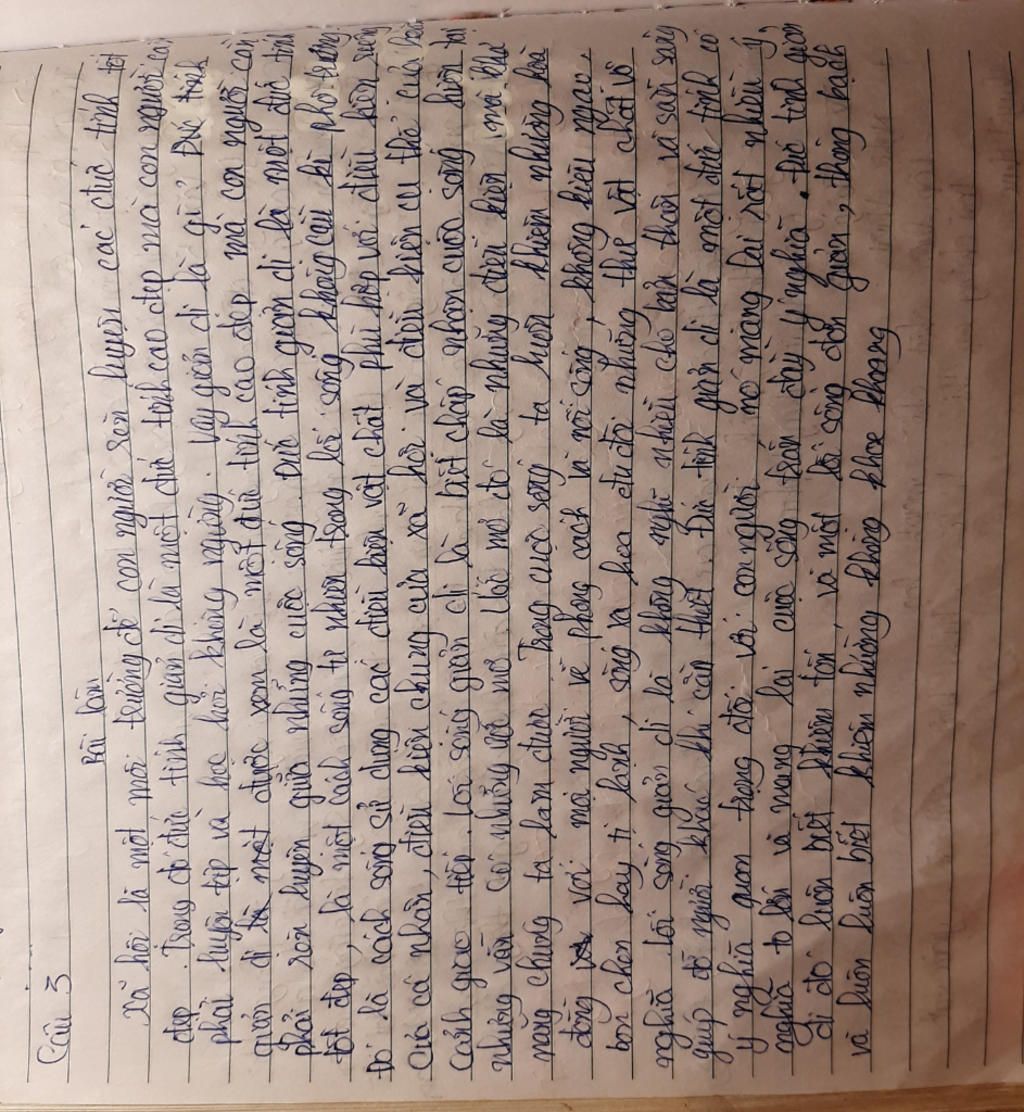 Câu 3
Bài làm
Xã hội là một môi trường để con người rèn luyện các đức tính tốt
đẹp. Trong đó đức tính giản dị là một đức tính cao đẹp mà con người cần
phải luyện tập và học hỏi không ngừng. Vậy giản dị là gì? Đức tính
giản dị là một được xem là một đức tính cao đẹp mà con người cần
phải rèn luyện giữa những cuộc sống. Đức tính giản dị là một đức tính
tốt đẹp, là một cách sống tự nhiên trong lối sống không cầu kì phô trương
Đó là cách sống sử dụng các điều kiện vật chất phù hợp với điều kiện sống
của cá nhân, điều kiện chung của xã hội và điều kiện cụ thể của hoàn
cảnh giao tiếp. Lối sống giản dị là bất chấp nhận cuộc sống hiện tại
nhưng vẫn có những ước mơ. Ước mơ đó là những điều kiện mà khả
năng chúng ta làm được. Trong cuộc sống ta luôn khiêm nhường hòa
đồng với mọi người về phong cách và nối sống, không kiêu ngạo,
bon chen hay tị hạnh, sống xa hoa đua đòi những thứ vật chất vô
nghĩa. Lối sống giản dị là không nghĩ nhiều cho bản thân và sẵn sàng
giúp đỡ người khác khi cần thiết. Đức tính giản dị là một đức tính có
ý nghĩa quan trọng đối với con người. nó mang lại rất nhiều ý
nghĩa to lớn và mang lại cuộc sống tràn đầy ý nghĩa. Đức tính giản
dị đó luôn biết khiêm tốn, và một lối sống đơn giản, thông bạch
và luôn biết khiêm nhường không khoe khoang